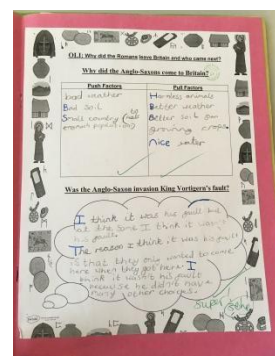 OLI: Why did the Romans leave Britain and who came next?
Why did the Anglo-Saxons come to Britain?
Push Factors
Pull Factors
bad weather
Bad Soil
Small country (
Harmless animals
Better weather
Better soil for
growing crops
nice water
Was the Anglo-Saxon invasion King Vortigern's fault?
I think it was his fault but
at the same I think it wasn't
his fault.
The reason I think it was his fault
is that they only wanted to come
here when they got here. I
think it wasn't his fault
because he didn't have
many other choices.
Super